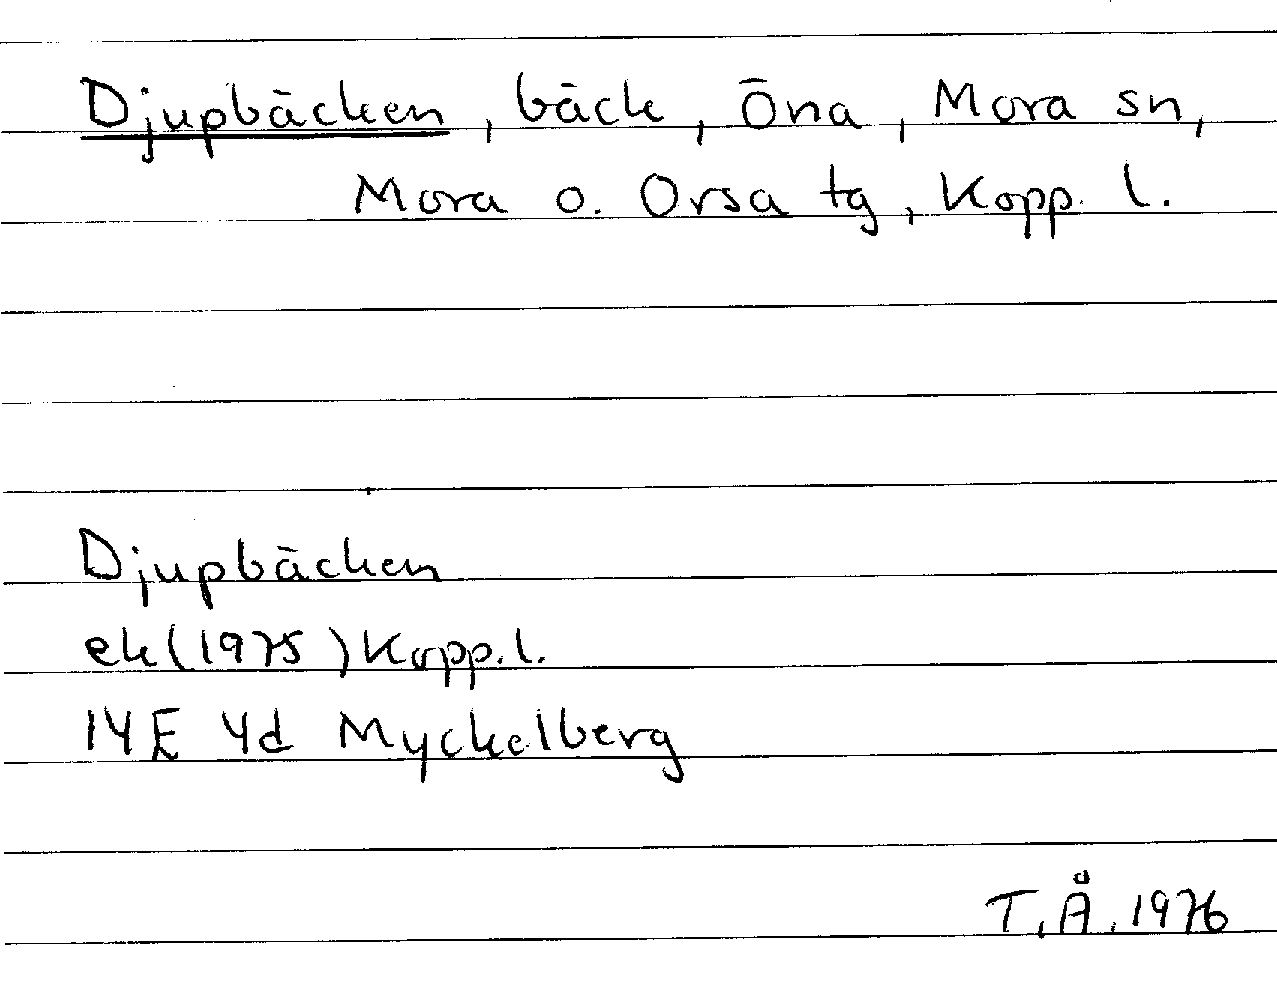 Djupbäcken, bäck, Öna, Mora sn,
Mora o. Orsa tg, Kopp. l.
Djupbäcken
ek(1975) Kopp. l.
14E 4d Myckelberg
T.Å. 1976